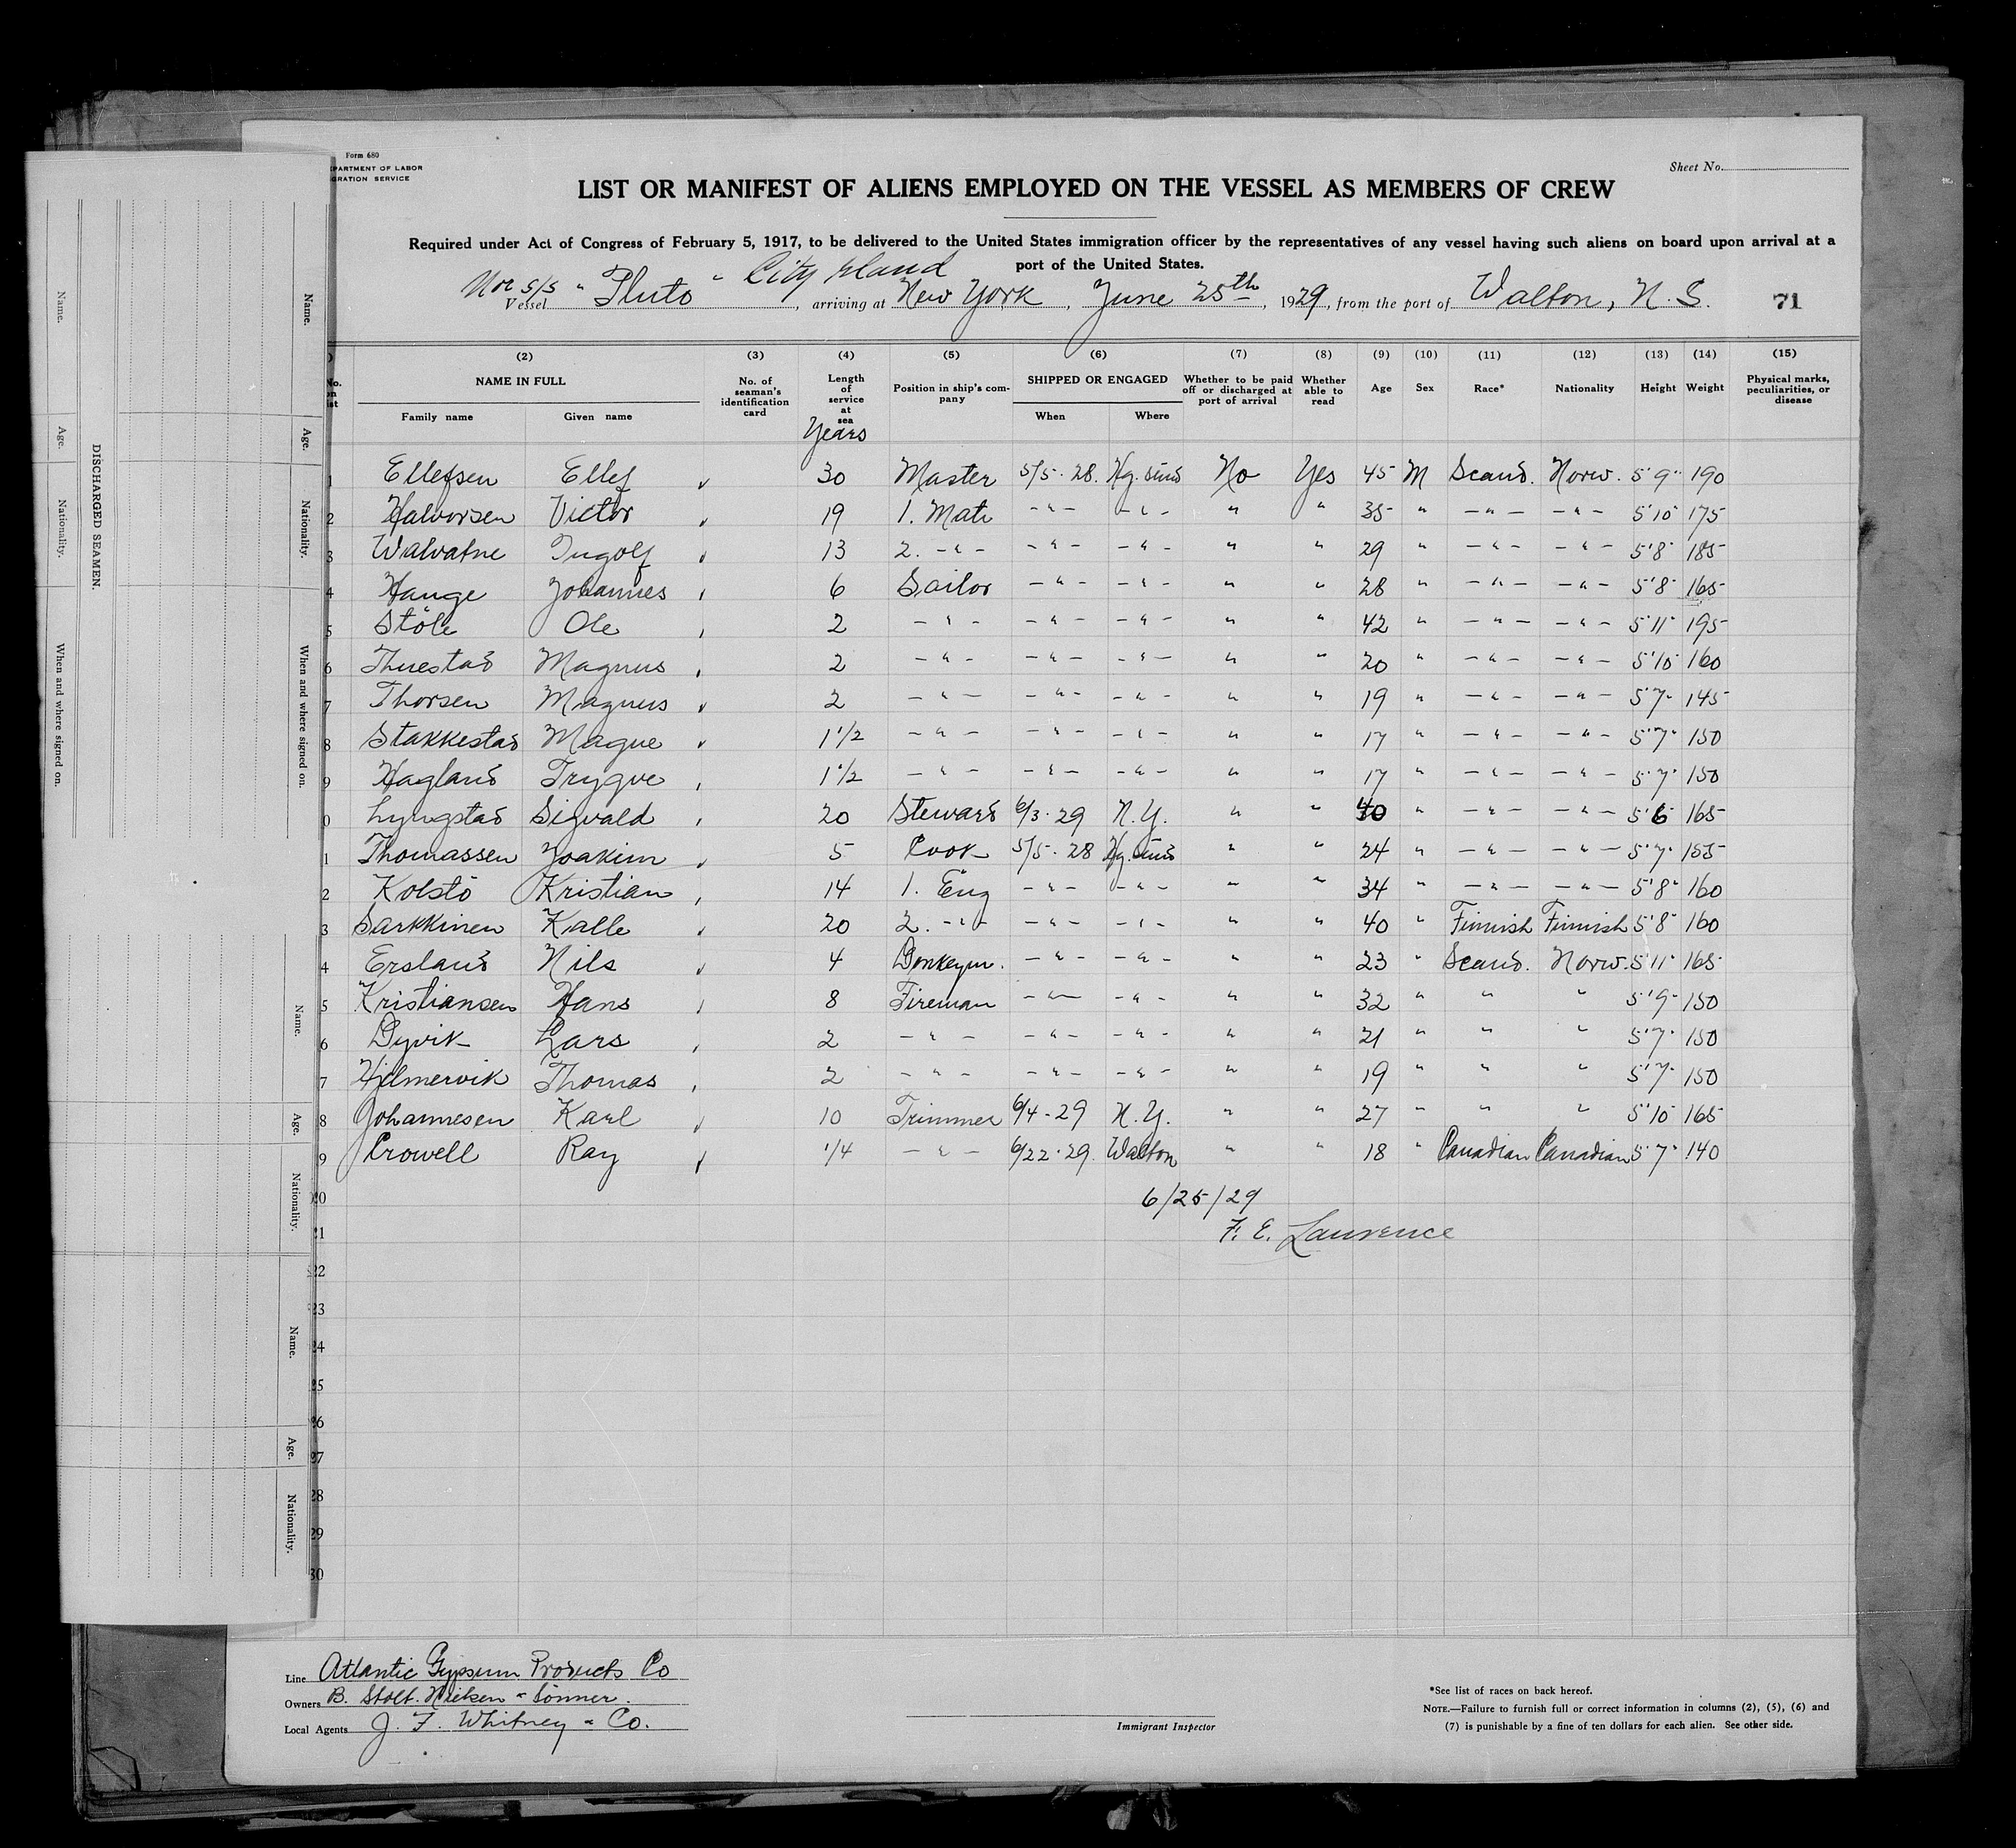 Form 680
PARTMENT OF LABOR
GRATION SERVICE
Sheet No.
LIST OR MANIFEST OF ALIENS EMPLOYED ON THE VESSEL AS MEMBERS OF CREW
Required under Act of Congress of February 5, 1917, to be delivered to the United States immigration officer by the representatives of any vessel having such aliens on board upon arrival at a
port of the United States.
City Island
Nor s/s
Vessel "Pluto", arriving at New York, June 25th, 1929, from the port of Walton, N.S. 71
(2) (3) (4) (5) (6) (7) (8) (9) (10) (11) (12) (13) (14) (15)
No. on list NAME IN FULL Family name Given name No. of seaman's identification card Length of service at sea Years Position in ship's company SHIPPED OR ENGAGED When Where Whether to be paid off or discharged at port of arrival Whether able to read Age Sex Race* Nationality Height Weight Physical marks, peculiarities, or disease
1 Ellefsen Ellef 30 Master 5/5-28. No Yes 45 M Scand. Norw. 5'9" 190
2 Halvorsen Victor 19 1. Mate -"- -"- " " 35 " -"- -"- 5'10" 175
3 Walvatne Ingolf 13 2. -"- -"- -"- " " 29 " -"- -"- 5'8" 185
4 Hauge Johannes 6 Sailor -"- -"- " " 28 " -"- -"- 5'8" 165
5 Stöle Ole 2 -"- -"- -"- " " 42 " -"- -"- 5'11" 195
6 Thuestad Magnus 2 -"- -"- -"- " " 20 " -"- -"- 5'10" 160
7 Thorsen Magnus 2 -"- -"- -"- " " 19 " -"- -"- 5'7" 145
8 Stakkestad Magne 1 1/2 -"- -"- -"- " " 17 " -"- -"- 5'7" 150
9 Hagland Trygve 1 1/2 -"- -"- -"- " " 17 " -"- -"- 5'7" 150
0 Lyngstad Sigvald 20 Steward 6/3-29 N.Y. " " 40 " -"- -"- 5'6" 165
1 Thomassen Joakim 5 Cook 5/5-28 " " 24 " -"- -"- 5'7" 155
2 Kolstö Kristian 14 1. Eng -"- -"- " " 34 " -"- -"- 5'8" 160
3 Sarkkinen Kalle 20 2. -"- -"- -"- " " 40 " Finnish Finnish 5'8" 160
4 Ersland Nils 4 Donkeym. -"- -"- " " 23 " Scand. Norw. 5'11" 165
5 Kristiansen Hans 8 Fireman -"- -"- " " 32 " " " 5'9" 150
6 Dyvik Lars 2 -"- -"- -"- " " 21 " " " 5'7" 150
7 Hjelmervik Thomas 2 -"- -"- -"- " " 19 " " " 5'7" 150
8 Johannesen Karl 10 Trimmer 6/4-29 N.Y. " " 27 " " " 5'10" 165
9 Crowell Ray 1/4 -"- 6/22-29. Walton " " 18 " Canadian Canadian 5'7" 140
20 6/25/29
21 F. E. Laurence
22
23
24
25
26
27
28
29
30
Line Atlantic Gypsum Products Co
Owners B. Stolt-Nielsen & Sönner.
Local Agents J. F. Whitney & Co.
Immigrant Inspector
*See list of races on back hereof.
NOTE.—Failure to furnish full or correct information in columns (2), (5), (6) and
(7) is punishable by a fine of ten dollars for each alien. See other side.
DISCHARGED SEAMEN.
Name. Age. Nationality. When and where signed on.
Name. Age. Nationality. When and where signed on.
Name. Age. Nationality.
Name. Age. Nationality.